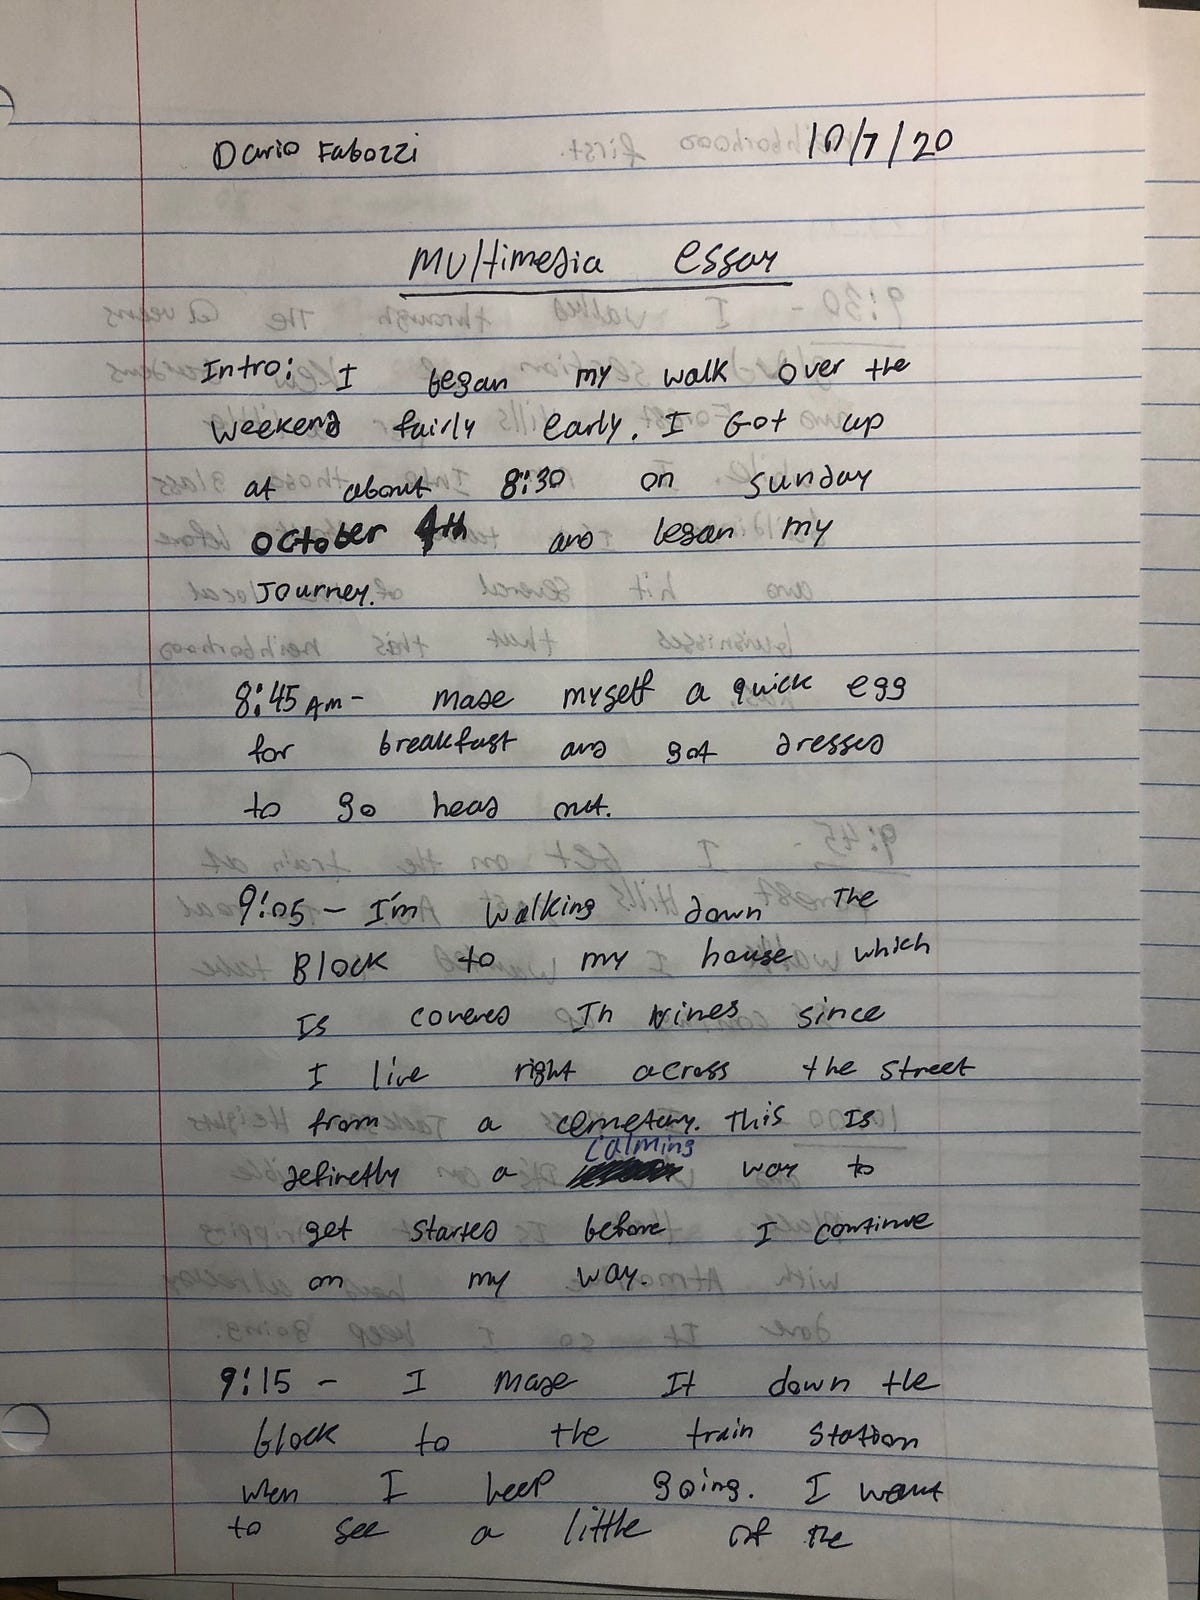 Dario Fabozzi 10/7/20
Multimedia essay
Intro: I began my walk over the
weekend fairly early. I Got up
at about 8:30 on sunday
October 4th and began my
Journey.
8:45 AM - made myself a quick egg
for breakfast and got dressed
to go head out.
9:05 - I'm walking down The
Block to my house which
Is covered In vines since
I live right across the street
from a cemetary. This Is
definetly a calming way to
get started before I continue
on my way.
9:15 - I made It down the
block to the train station
when I keep going. I want
to see a little of the